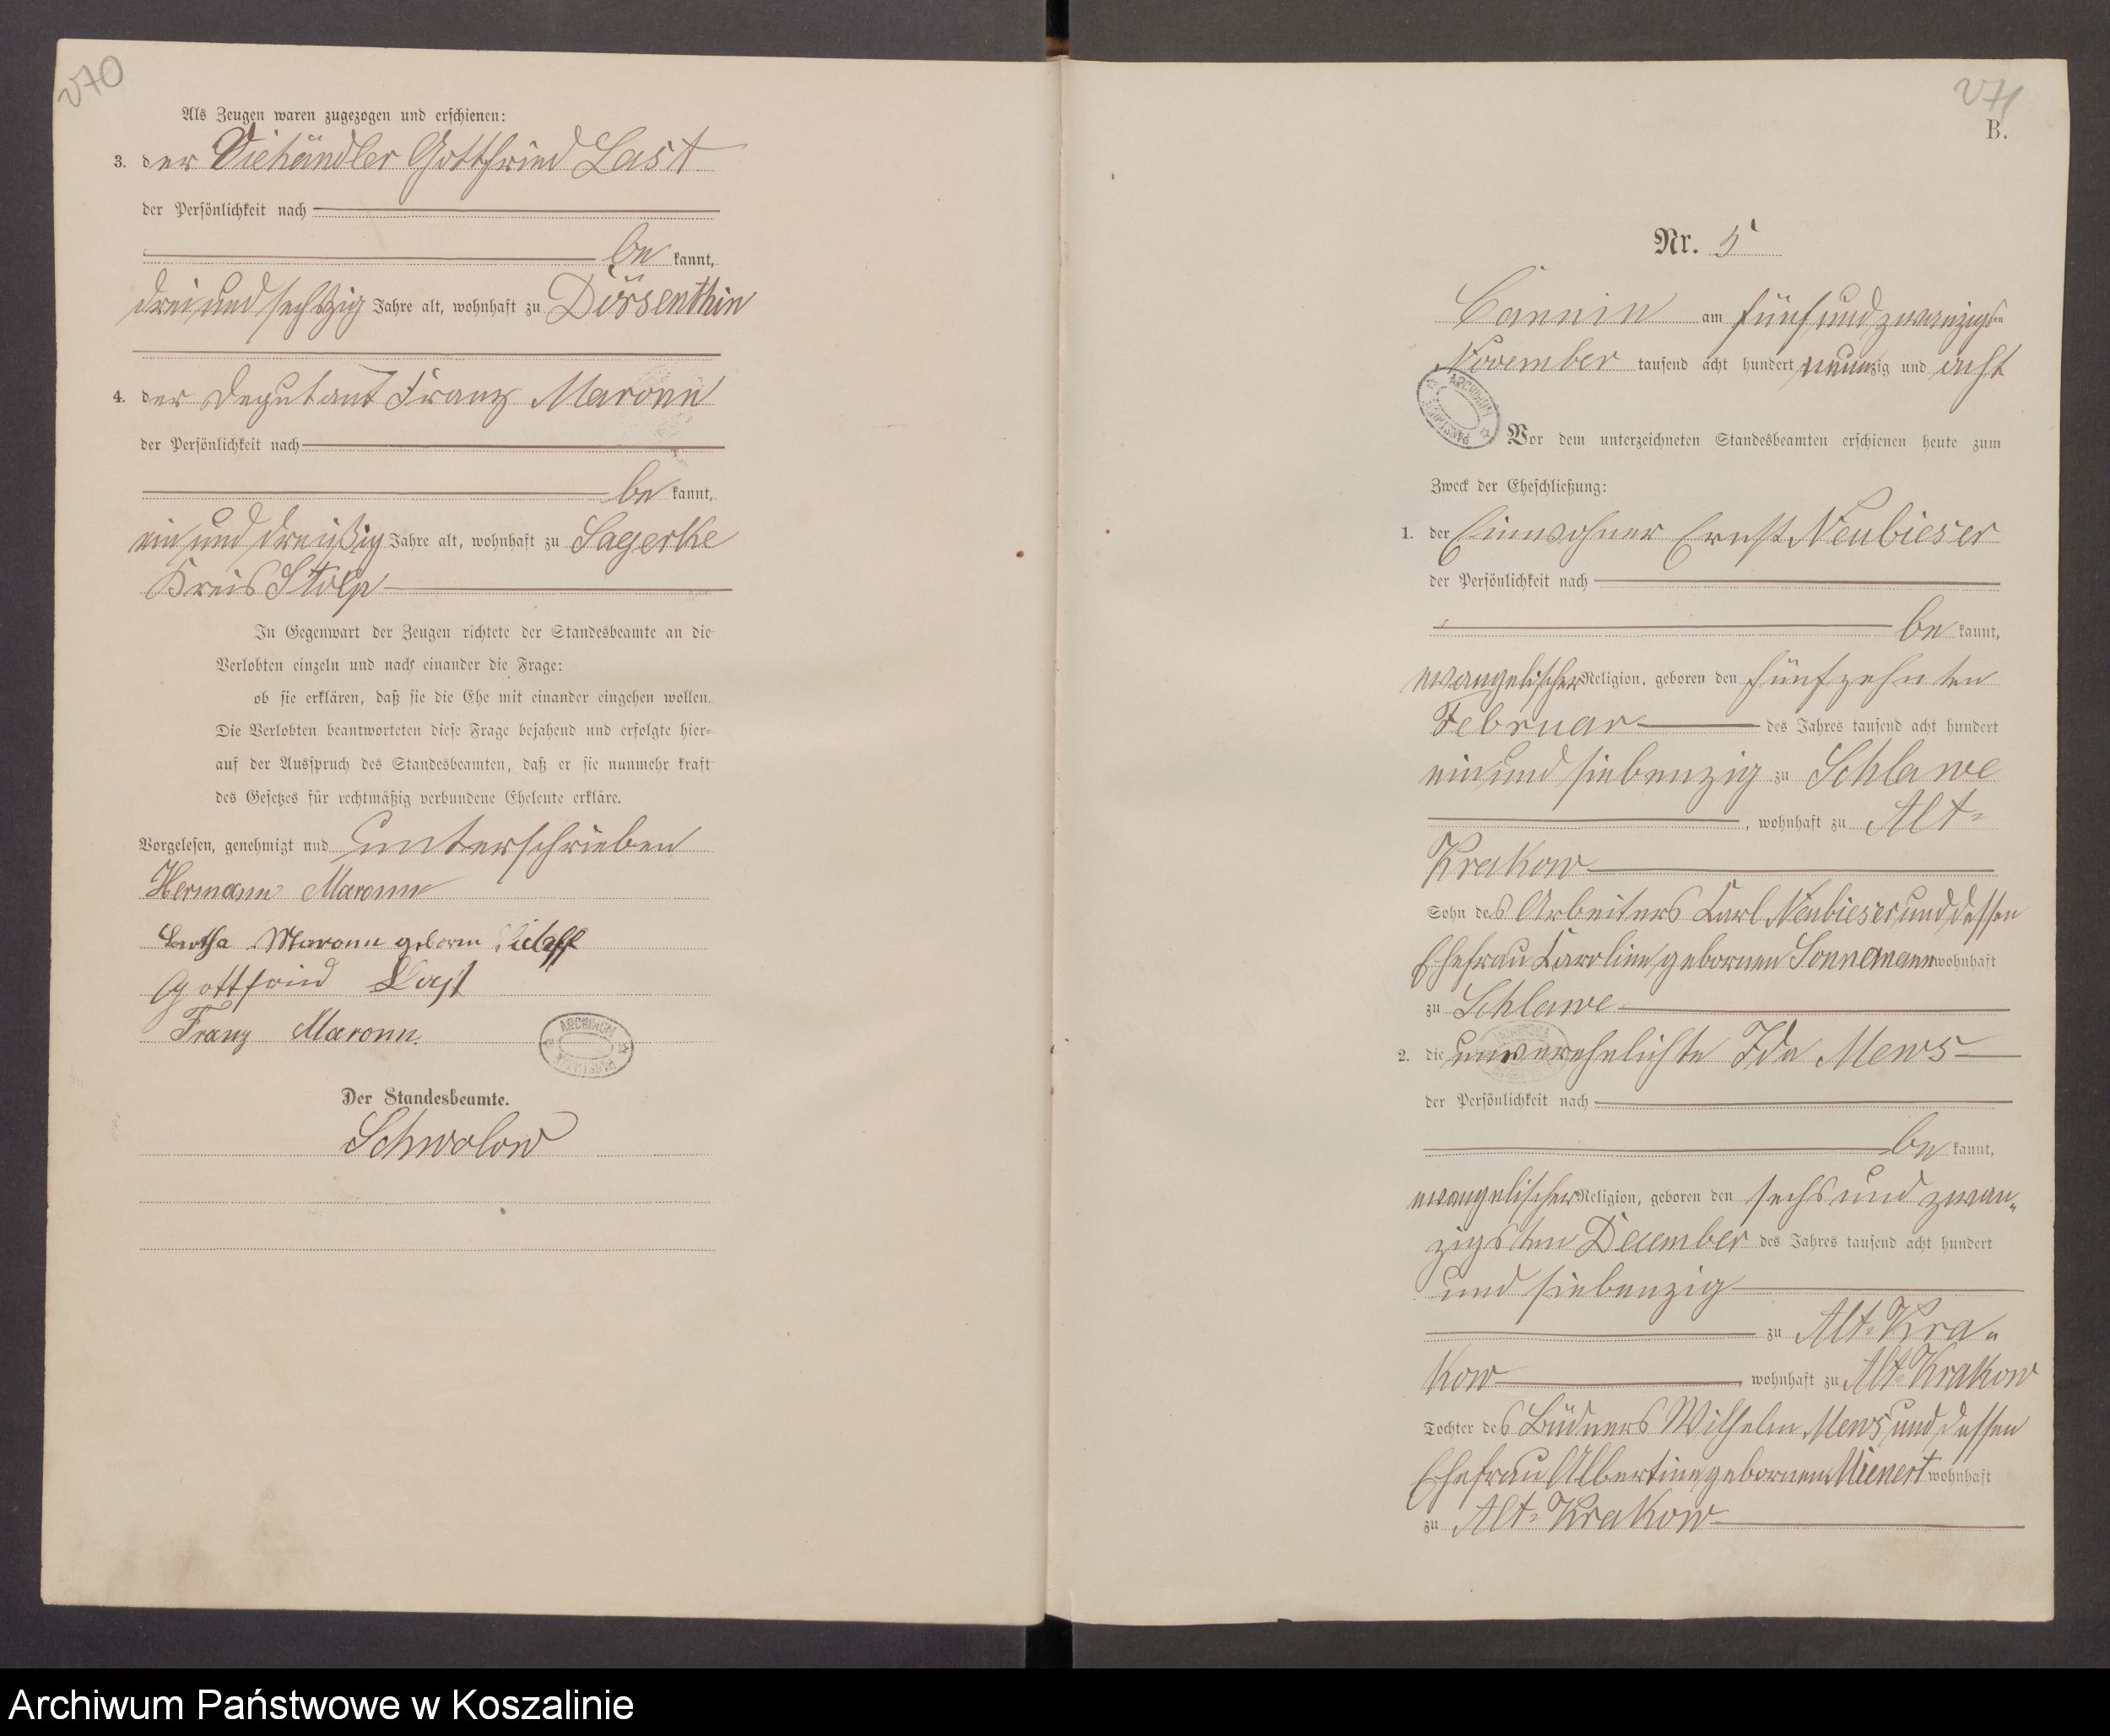 270
Als Zeugen waren zugezogen und erschienen:
3. der Viehändler Gottfried Last
der Persönlichkeit nach
be kannt,
drei und sechszig Jahre alt, wohnhaft zu Dörsenthin
4. der Deputant Franz Maronn
der Persönlichkeit nach
be kannt,
ein und dreißig Jahre alt, wohnhaft zu Sagerke
Kreis Stolp
In Gegenwart der Zeugen richtete der Standesbeamte an die
Verlobten einzeln und nach einander die Frage:
ob sie erklären, daß sie die Ehe mit einander eingehen wollen.
Die Verlobten beantworteten diese Frage bejahend und erfolgte hier-
auf der Ausspruch des Standesbeamten, daß er sie nunmehr kraft
des Gesetzes für rechtmäßig verbundene Eheleute erkläre.
Vorgelesen, genehmigt und unterschrieben
Hermann Maronn
Bertha Maronn geboren
Gottfried Last
Franz Maronn.
Der Standesbeamte.
Schwolow
271
B.
Nr. 5
Cannin am fünf und zwanzigsten
November tausend acht hundert neunzig und acht
Vor dem unterzeichneten Standesbeamten erschienen heute zum
Zweck der Eheschließung:
1. der Einwohner Ernst Neubieser
der Persönlichkeit nach
be kannt,
evangelischer Religion, geboren den fünfzehnten
Februar des Jahres tausend acht hundert
ein und siebenzig zu Schlawe
, wohnhaft zu Alt-
Krakow
Sohn des Arbeiters Carl Neubieser und dessen
Ehefrau Caroline gebornen Sonnemann wohnhaft
zu Schlawe
2. die unverehelichte Ida Mews
der Persönlichkeit nach
be kannt,
evangelischer Religion, geboren den sechs und zwan-
zigsten December des Jahres tausend acht hundert
und siebenzig
zu Alt-Kra-
kow, wohnhaft zu Alt-Krakow
Tochter des Büdners Wilhelm Mews und dessen
Ehefrau Albertine gebornen Mienert wohnhaft
zu Alt-Krakow
Archiwum Państwowe w Koszalinie